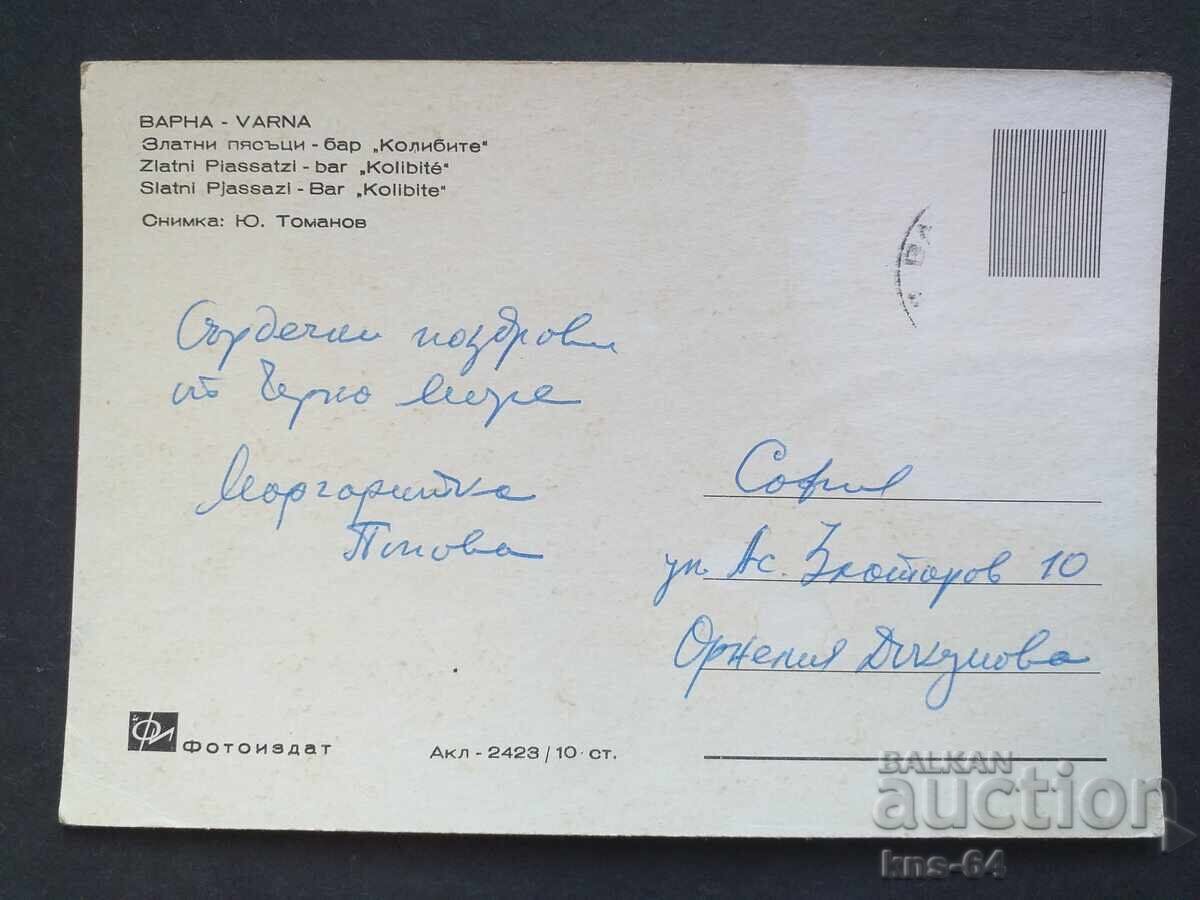 ВАРНА - VARNA
Златни пясъци - бар „Колибите"
Zlatni Piassatzi - bar „Kolibité"
Slatni Pjassazi - Bar „Kolibite"
Снимка: Ю. Томанов
Сърдечни поздрави
от Черно море
Маргаритка
Попова
София
ул. Ас. Златаров 10
ФИ Фотоиздат
Акл - 2423 / 10 ст.
BALKAN
auction
kns-64